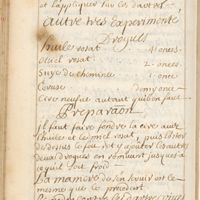 et l'appliquer sur les dartres.
Autre tres Experimenté
Drogues
huile rosat 4 onces
miel rosat 2 onces
Suye de cheminée 1 once
Ceruse demy once
Cire neufue autant quil en faut
Preparaon
il faut faire fondre la cire avec
l'huile et le miel rosat, puis l'oster
de dessus le feu, et y ajouter les autres
drogues en remuant jusques a
ce quil soit froid
La maniere de s'en servir est la
mesme que le precedent